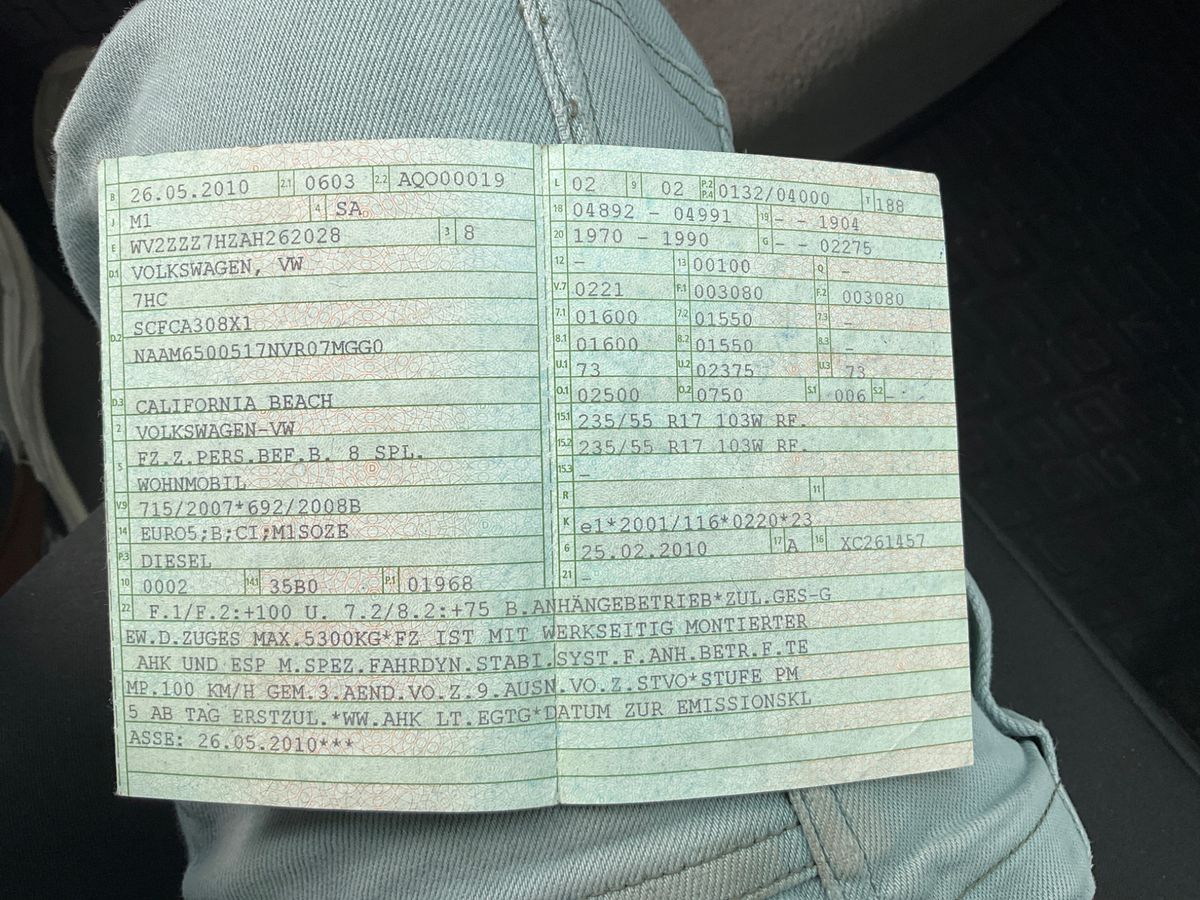 B 26.05.2010 2.1 0603 2.2 AQO00019
J M1 4 SA
E WV2ZZZ7HZAH262028 3 8
D.1 VOLKSWAGEN, VW
7HC
D.2 SCFCA308X1
NAAM6500517NVR07MGG0
D.3 CALIFORNIA BEACH
2 VOLKSWAGEN-VW
5 FZ.Z.PERS.BEF.B. 8 SPL.
WOHNMOBIL
V.9 715/2007*692/2008B
14 EURO5;B;CI;M1SOZE
P.3 DIESEL
10 0002 14.1 35B0 P.1 01968
L 02 9 02 P.2 P.4 0132/04000 T 188
18 04892 - 04991 19 - - 1904
20 1970 - 1990 G - - 02275
12 - 13 00100 Q -
V.7 0221 F.1 003080 F.2 003080
7.1 01600 7.2 01550 7.3 -
8.1 01600 8.2 01550 8.3 -
U.1 73 U.2 02375 U.3 73
O.1 02500 O.2 0750 S.1 006 S.2 -
15.1 235/55 R17 103W RF.
15.2 235/55 R17 103W RF.
15.3 -
R 11
K e1*2001/116*0220*23
6 25.02.2010 17 A 16 XC261457
21 -
22 F.1/F.2:+100 U. 7.2/8.2:+75 B.ANHÄNGEBETRIEB*ZUL.GES-G
EW.D.ZUGES MAX.5300KG*FZ IST MIT WERKSEITIG MONTIERTER
AHK UND ESP M.SPEZ.FAHRDYN.STABI.SYST.F.ANH.BETR.F.TE
MP.100 KM/H GEM.3.AEND.VO.Z.9.AUSN.VO.Z.STVO*STUFE PM
5 AB TAG ERSTZUL.*WW.AHK LT.EGTG*DATUM ZUR EMISSIONSKL
ASSE: 26.05.2010***